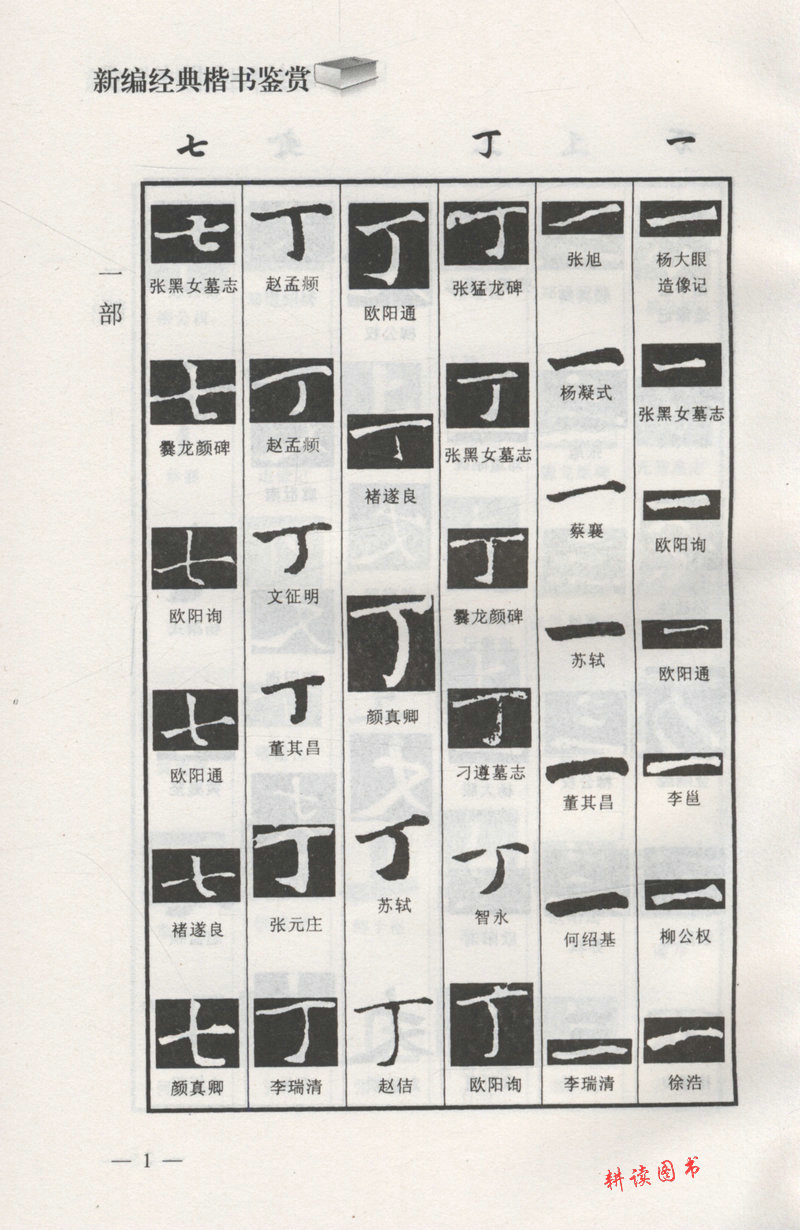 新编经典楷书鉴赏
一 丁 七
一部
一
杨大眼
造像记
一
张黑女墓志
一
欧阳询
一
欧阳通
一
李邕
一
柳公权
一
徐浩
一
张旭
一
杨凝式
一
蔡襄
一
苏轼
一
董其昌
一
何绍基
一
李瑞清
丁
张猛龙碑
丁
张黑女墓志
丁
爨龙颜碑
丁
刁遵墓志
丁
智永
丁
欧阳询
丁
欧阳通
丁
褚遂良
丁
颜真卿
丁
苏轼
丁
赵佶
丁
赵孟頫
丁
赵孟頫
丁
文征明
丁
董其昌
丁
张元庄
丁
李瑞清
七
张黑女墓志
七
爨龙颜碑
七
欧阳询
七
欧阳通
七
褚遂良
七
颜真卿
— 1 —
耕读图书